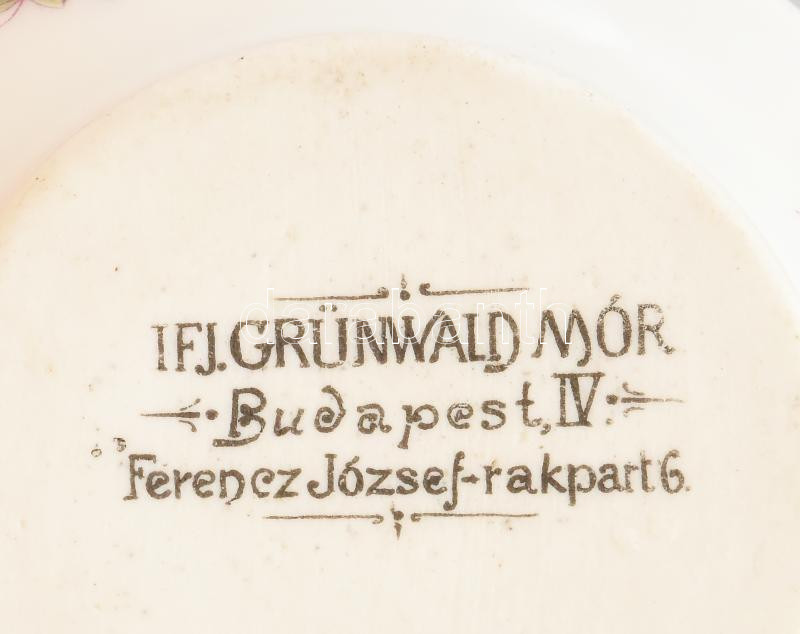 IFJ. GRÜNWALD MÓR
Budapest, IV.
Ferencz József-rakpart 6.
darabanth